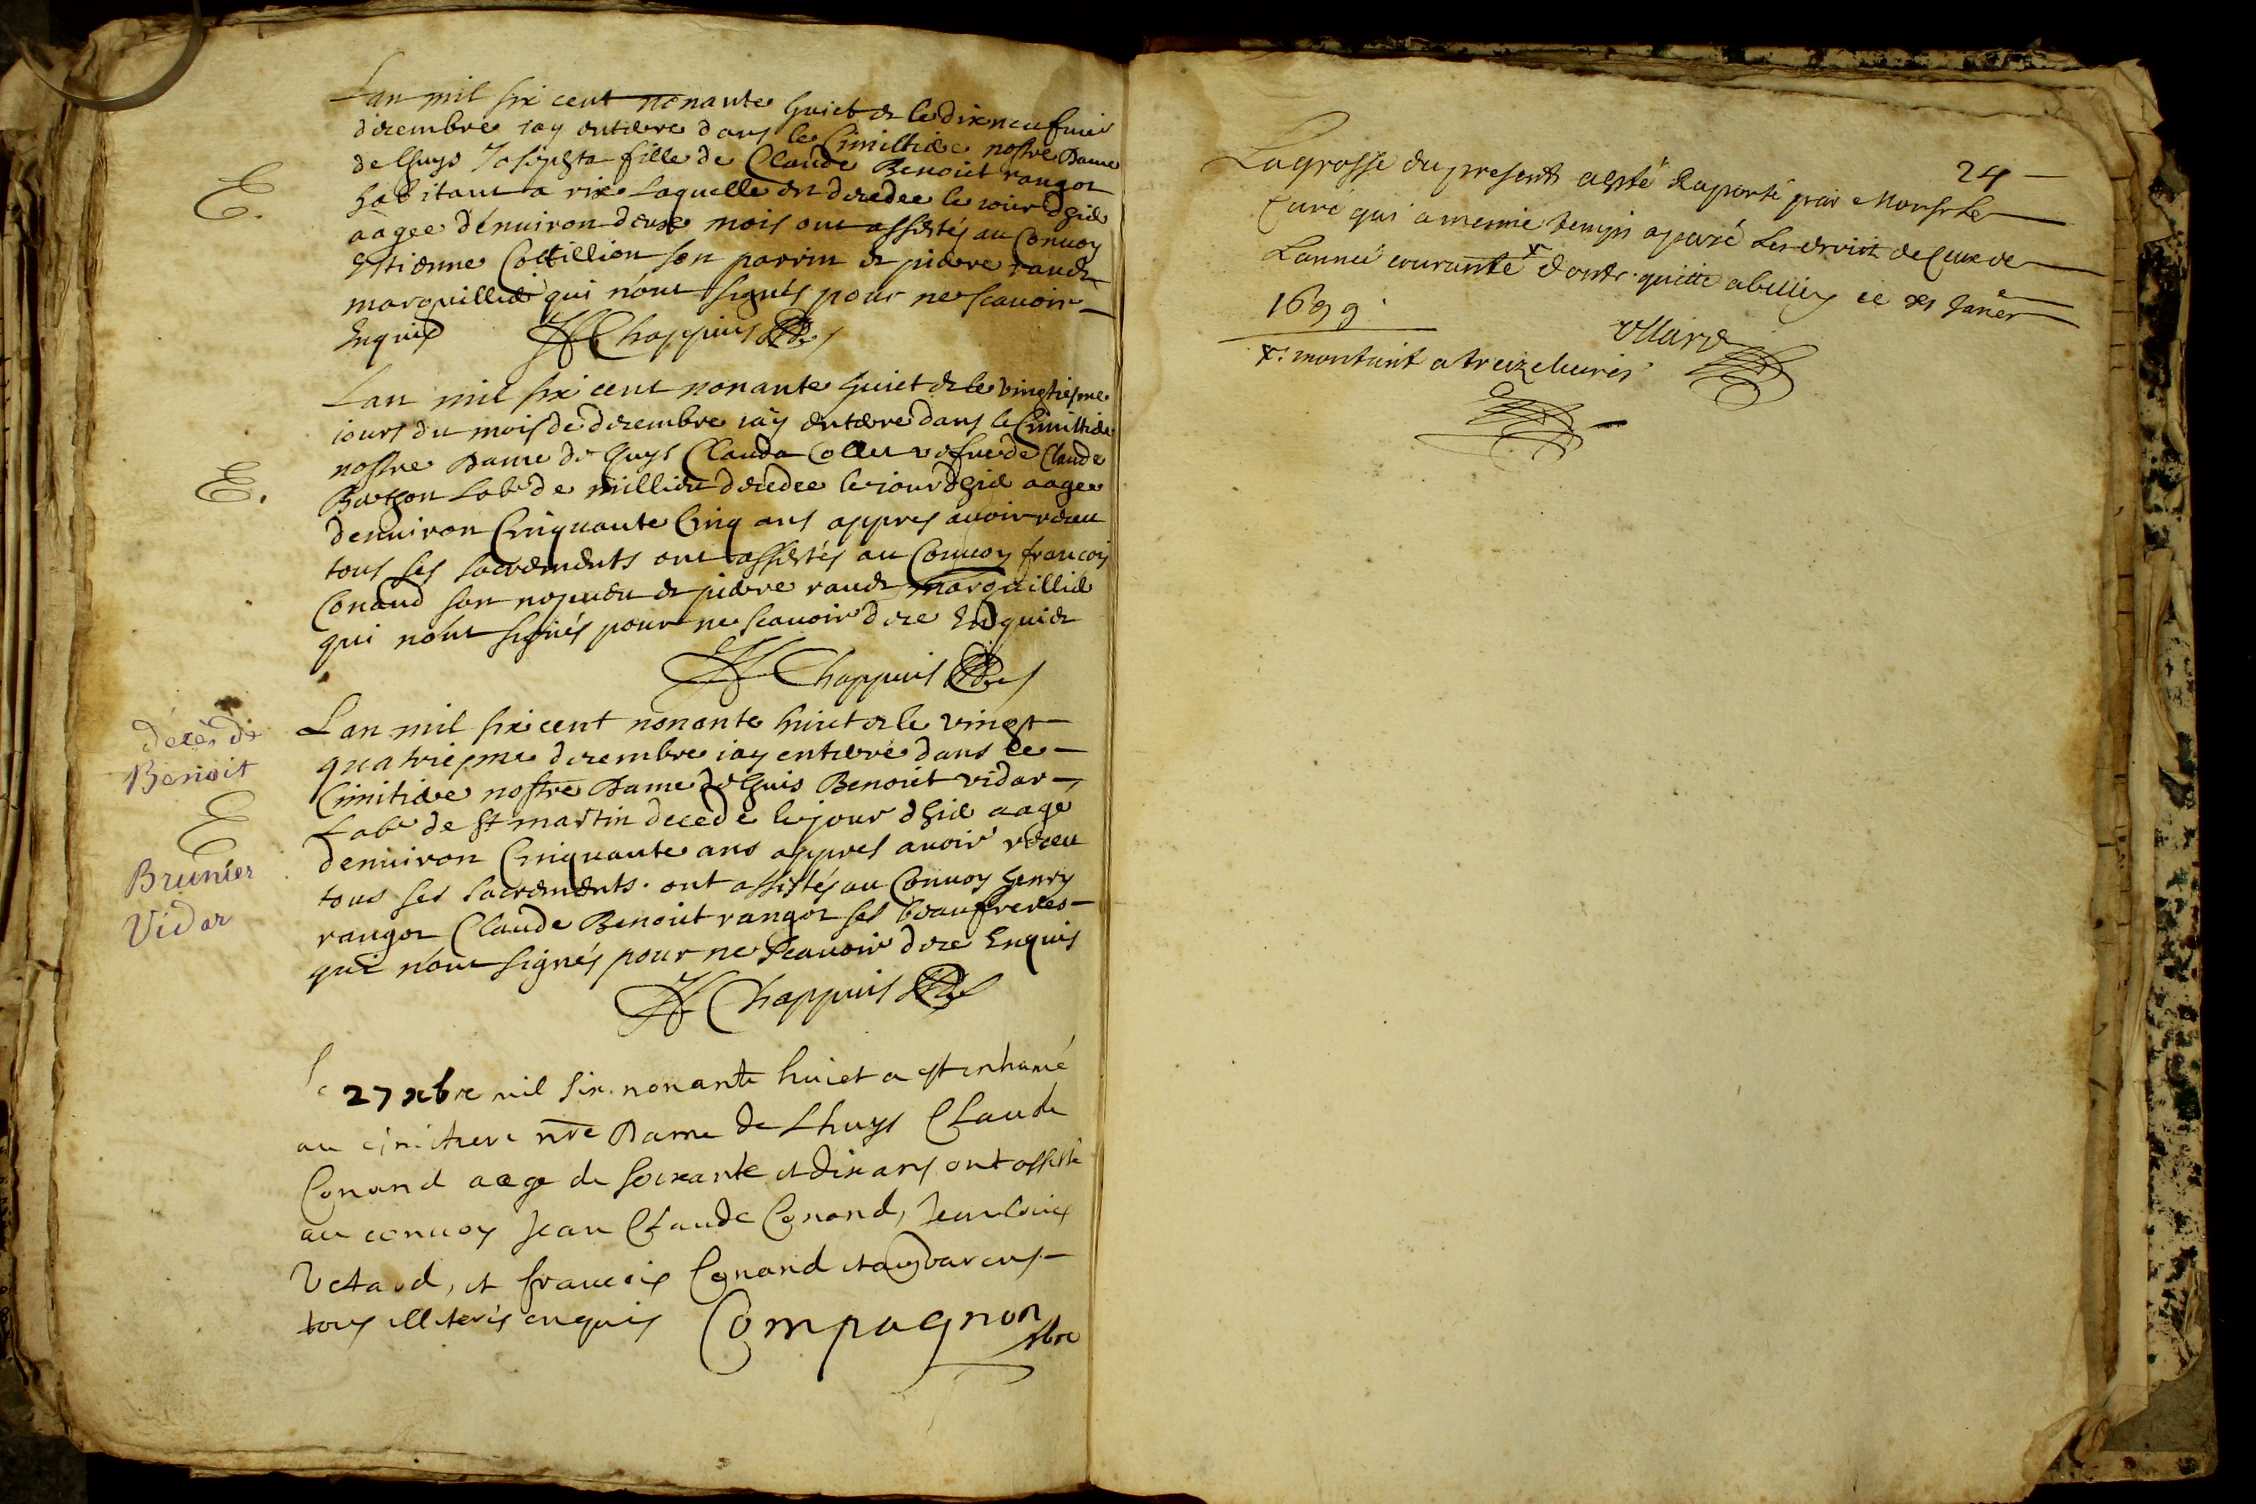 Lan mil six cent nonante huict & le dixneufuie
décembre iay enterre dans le Cimittiere nostre Dame
de lhuys Josephta fille de Claude Benoict rangot
E.
habitant a rix laquelle est decedee le iour dhier
aagee denuiron deux mois ont assistés au Conuoy
Estienne Cottillion son parrin & pierre raude
marguillier qui nont signés pour ne scauoir
Enquis Chappuis
Lan mil six cent nonante huict & le vingtiesme
iours du mois de decembre iay enterre dans le Cimittiere
nostre Dame de lhuys Clauda Collet vefue de Claude
E.
Berthon Labr de millieu decedee le iour dhier aagee
denuiron Cinquante Cinq ans appres auoir receu
tous ses sacrements ont assistés au Conuoy francois
Conand son nepueu & pierre raude marguillier
qui nont signés pour ne scauoir de ce Enquis
Chappuis
Lan mil six cent nonante huict & le vingt
quatriesme decembre iay enterré dans le
Cimitiere nostre Dame de lhuis Benoict vidar
Labr de st martin decede le jour dhier aage
denuiron Cinquante ans appres auoir receu
tous ses sacrements. ont assistés au Conuoy henry
rangot Claude Benoict rangot ses beaufreres
qui nont signés pour ne scauoir de ce Enquis
Chappuis
décès de
Benoit
E
Brunier
Vidar
Le 27 xbre mil six. nonante huict a est enhumé
au cimitiere nre Dame de Lhuys Claude
Conand aage de soixante et dix ans ont assisté
au conuoy Jean Claude Conand, Jean Louis
et francois Conand
tous illiterés enquis Compagnon
pbre
24
La grosse du present a esté Raporté par Monsr le
Curé qui a mesme temps a payé les droict de
Lannée courante x dont quitte a belley ce janer
1699.
x. montant a treize liures